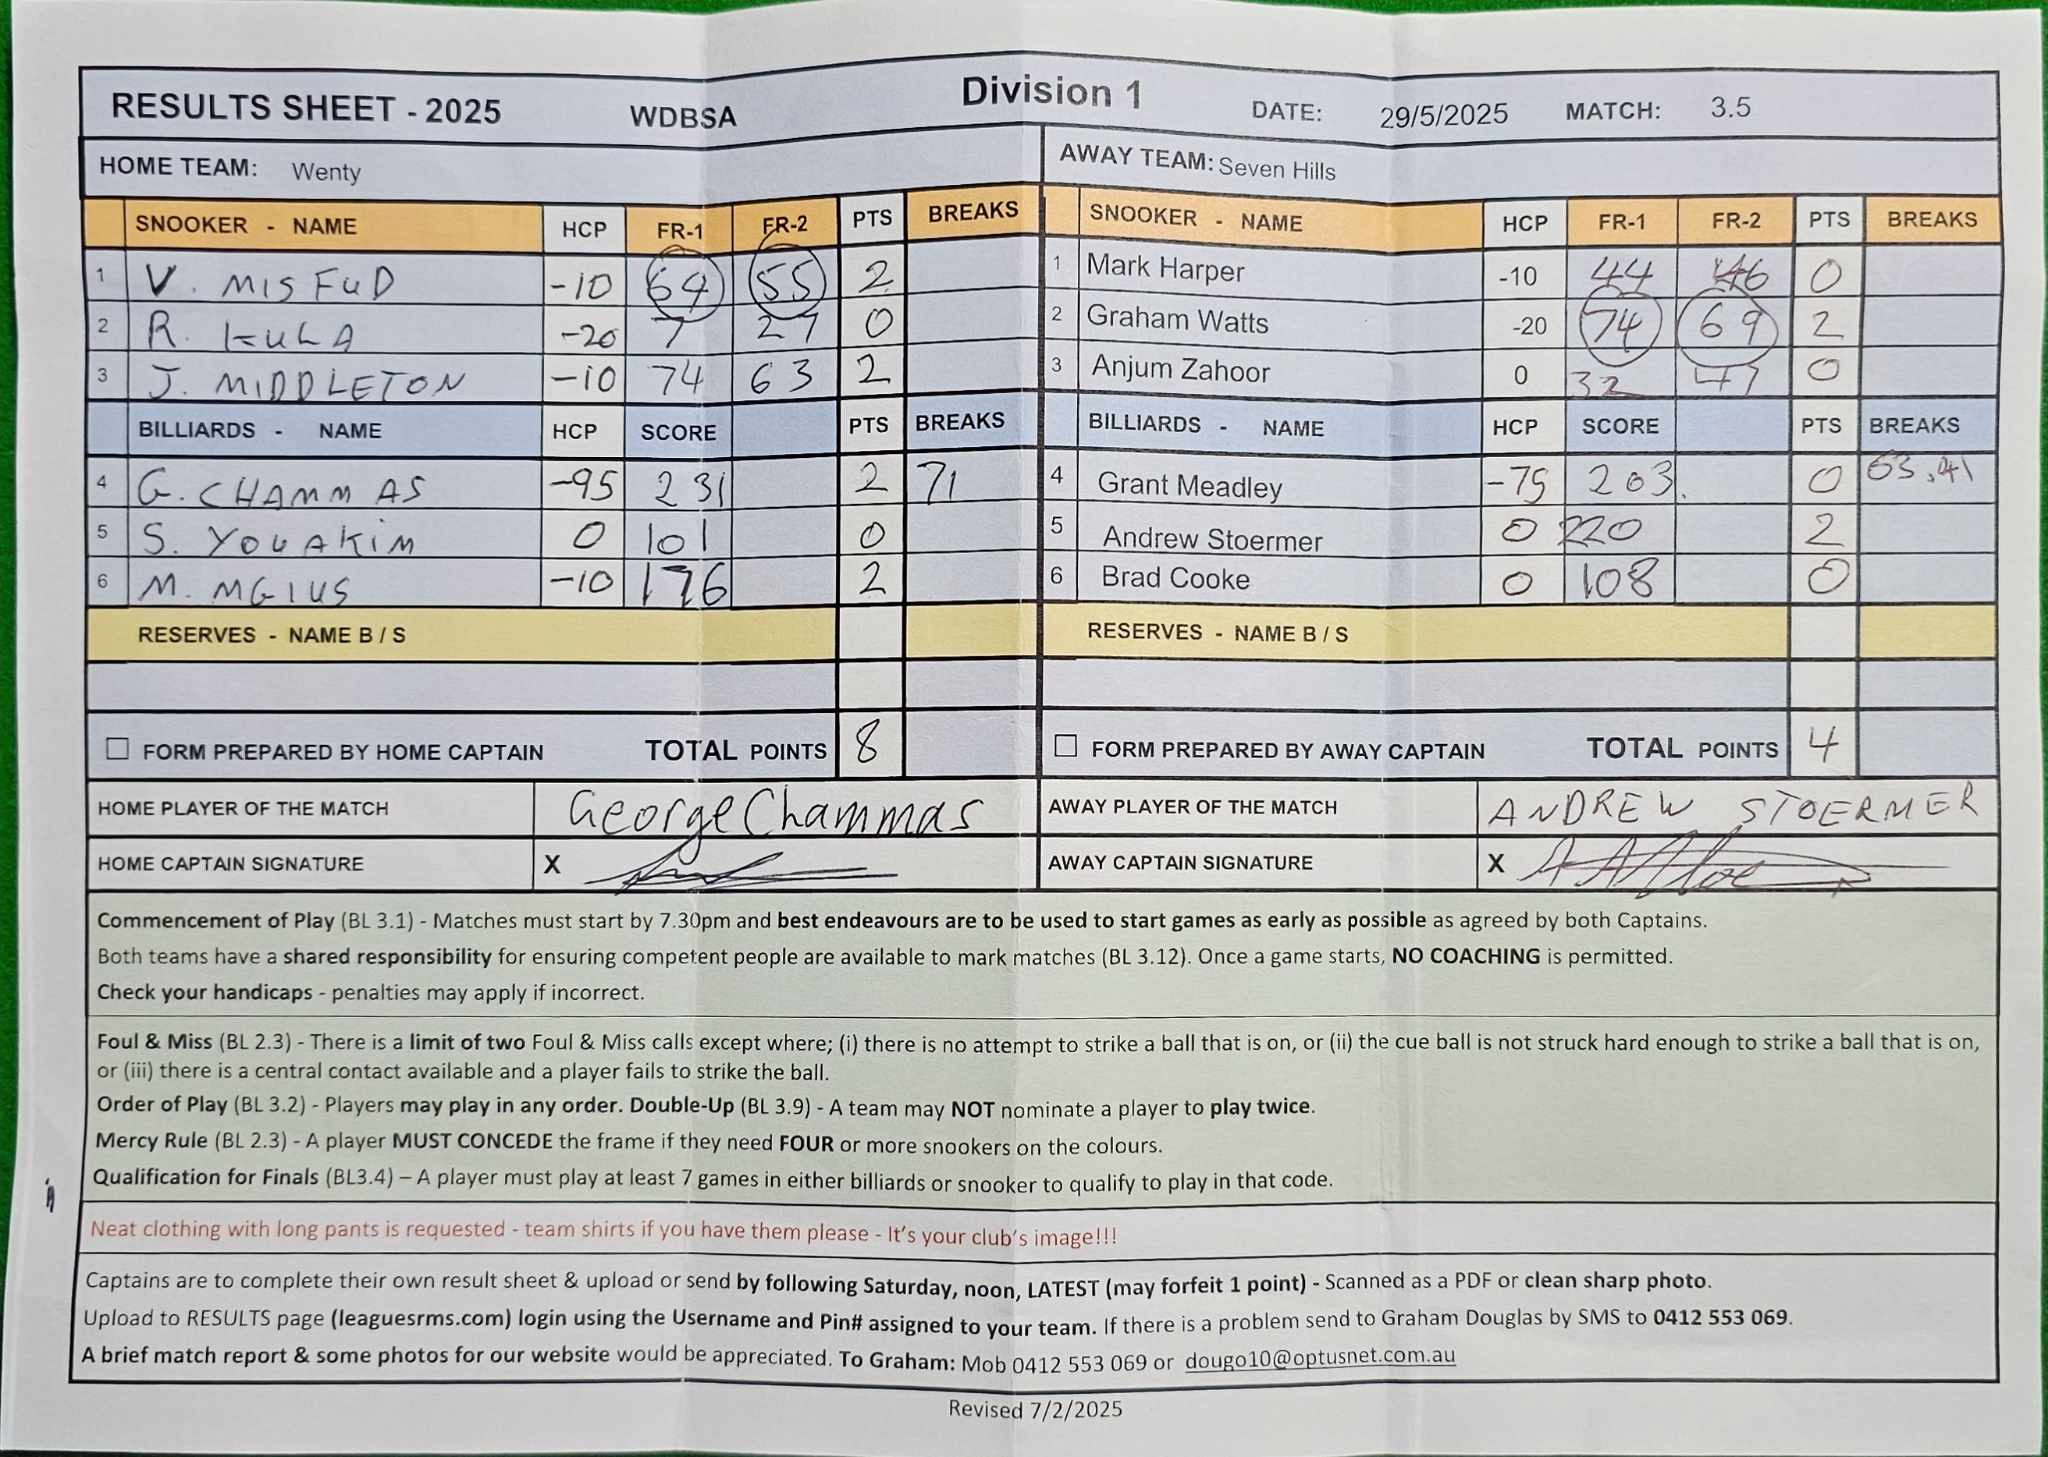 RESULTS SHEET - 2025 WDBSA Division 1 DATE: 29/5/2025 MATCH: 3.5
HOME TEAM: Wenty AWAY TEAM: Seven Hills
SNOOKER - NAME HCP FR-1 FR-2 PTS BREAKS SNOOKER - NAME HCP FR-1 FR-2 PTS BREAKS
1 V. MISFUD -10 64 55 2 1 Mark Harper -10 44 46 0
2 R. KULA -20 7 27 0 2 Graham Watts -20 74 69 2
3 J. MIDDLETON -10 74 63 2 3 Anjum Zahoor 0 32 47 0
BILLIARDS - NAME HCP SCORE PTS BREAKS BILLIARDS - NAME HCP SCORE PTS BREAKS
4 G. CHAMMAS -95 231 2 71 4 Grant Meadley -75 203. 0 63,41
5 S. YOUAKIM 0 101 0 5 Andrew Stoermer 0 220 2
6 M. MGIUS -10 176 2 6 Brad Cooke 0 108 0
RESERVES - NAME B / S RESERVES - NAME B / S
FORM PREPARED BY HOME CAPTAIN TOTAL POINTS 8 FORM PREPARED BY AWAY CAPTAIN TOTAL POINTS 4
HOME PLAYER OF THE MATCH George Chammas AWAY PLAYER OF THE MATCH ANDREW STOERMER
HOME CAPTAIN SIGNATURE X AWAY CAPTAIN SIGNATURE X
Commencement of Play (BL 3.1) - Matches must start by 7.30pm and best endeavours are to be used to start games as early as possible as agreed by both Captains.
Both teams have a shared responsibility for ensuring competent people are available to mark matches (BL 3.12). Once a game starts, NO COACHING is permitted.
Check your handicaps - penalties may apply if incorrect.
Foul & Miss (BL 2.3) - There is a limit of two Foul & Miss calls except where; (i) there is no attempt to strike a ball that is on, or (ii) the cue ball is not struck hard enough to strike a ball that is on,
or (iii) there is a central contact available and a player fails to strike the ball.
Order of Play (BL 3.2) - Players may play in any order. Double-Up (BL 3.9) - A team may NOT nominate a player to play twice.
Mercy Rule (BL 2.3) - A player MUST CONCEDE the frame if they need FOUR or more snookers on the colours.
Qualification for Finals (BL3.4) – A player must play at least 7 games in either billiards or snooker to qualify to play in that code.
Neat clothing with long pants is requested - team shirts if you have them please - It's your club's image!!!
Captains are to complete their own result sheet & upload or send by following Saturday, noon, LATEST (may forfeit 1 point) - Scanned as a PDF or clean sharp photo.
Upload to RESULTS page (leaguesrms.com) login using the Username and Pin# assigned to your team. If there is a problem send to Graham Douglas by SMS to 0412 553 069.
A brief match report & some photos for our website would be appreciated. To Graham: Mob 0412 553 069 or dougo10@optusnet.com.au
Revised 7/2/2025